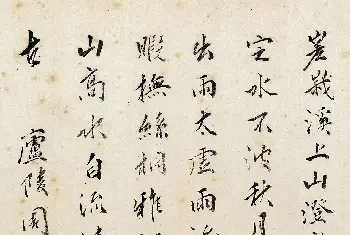 嵳峩溪上山澄
定水不波秋月
出雨太虚雨
暇撫絲桐雅
山高水自流
古
廬陵周